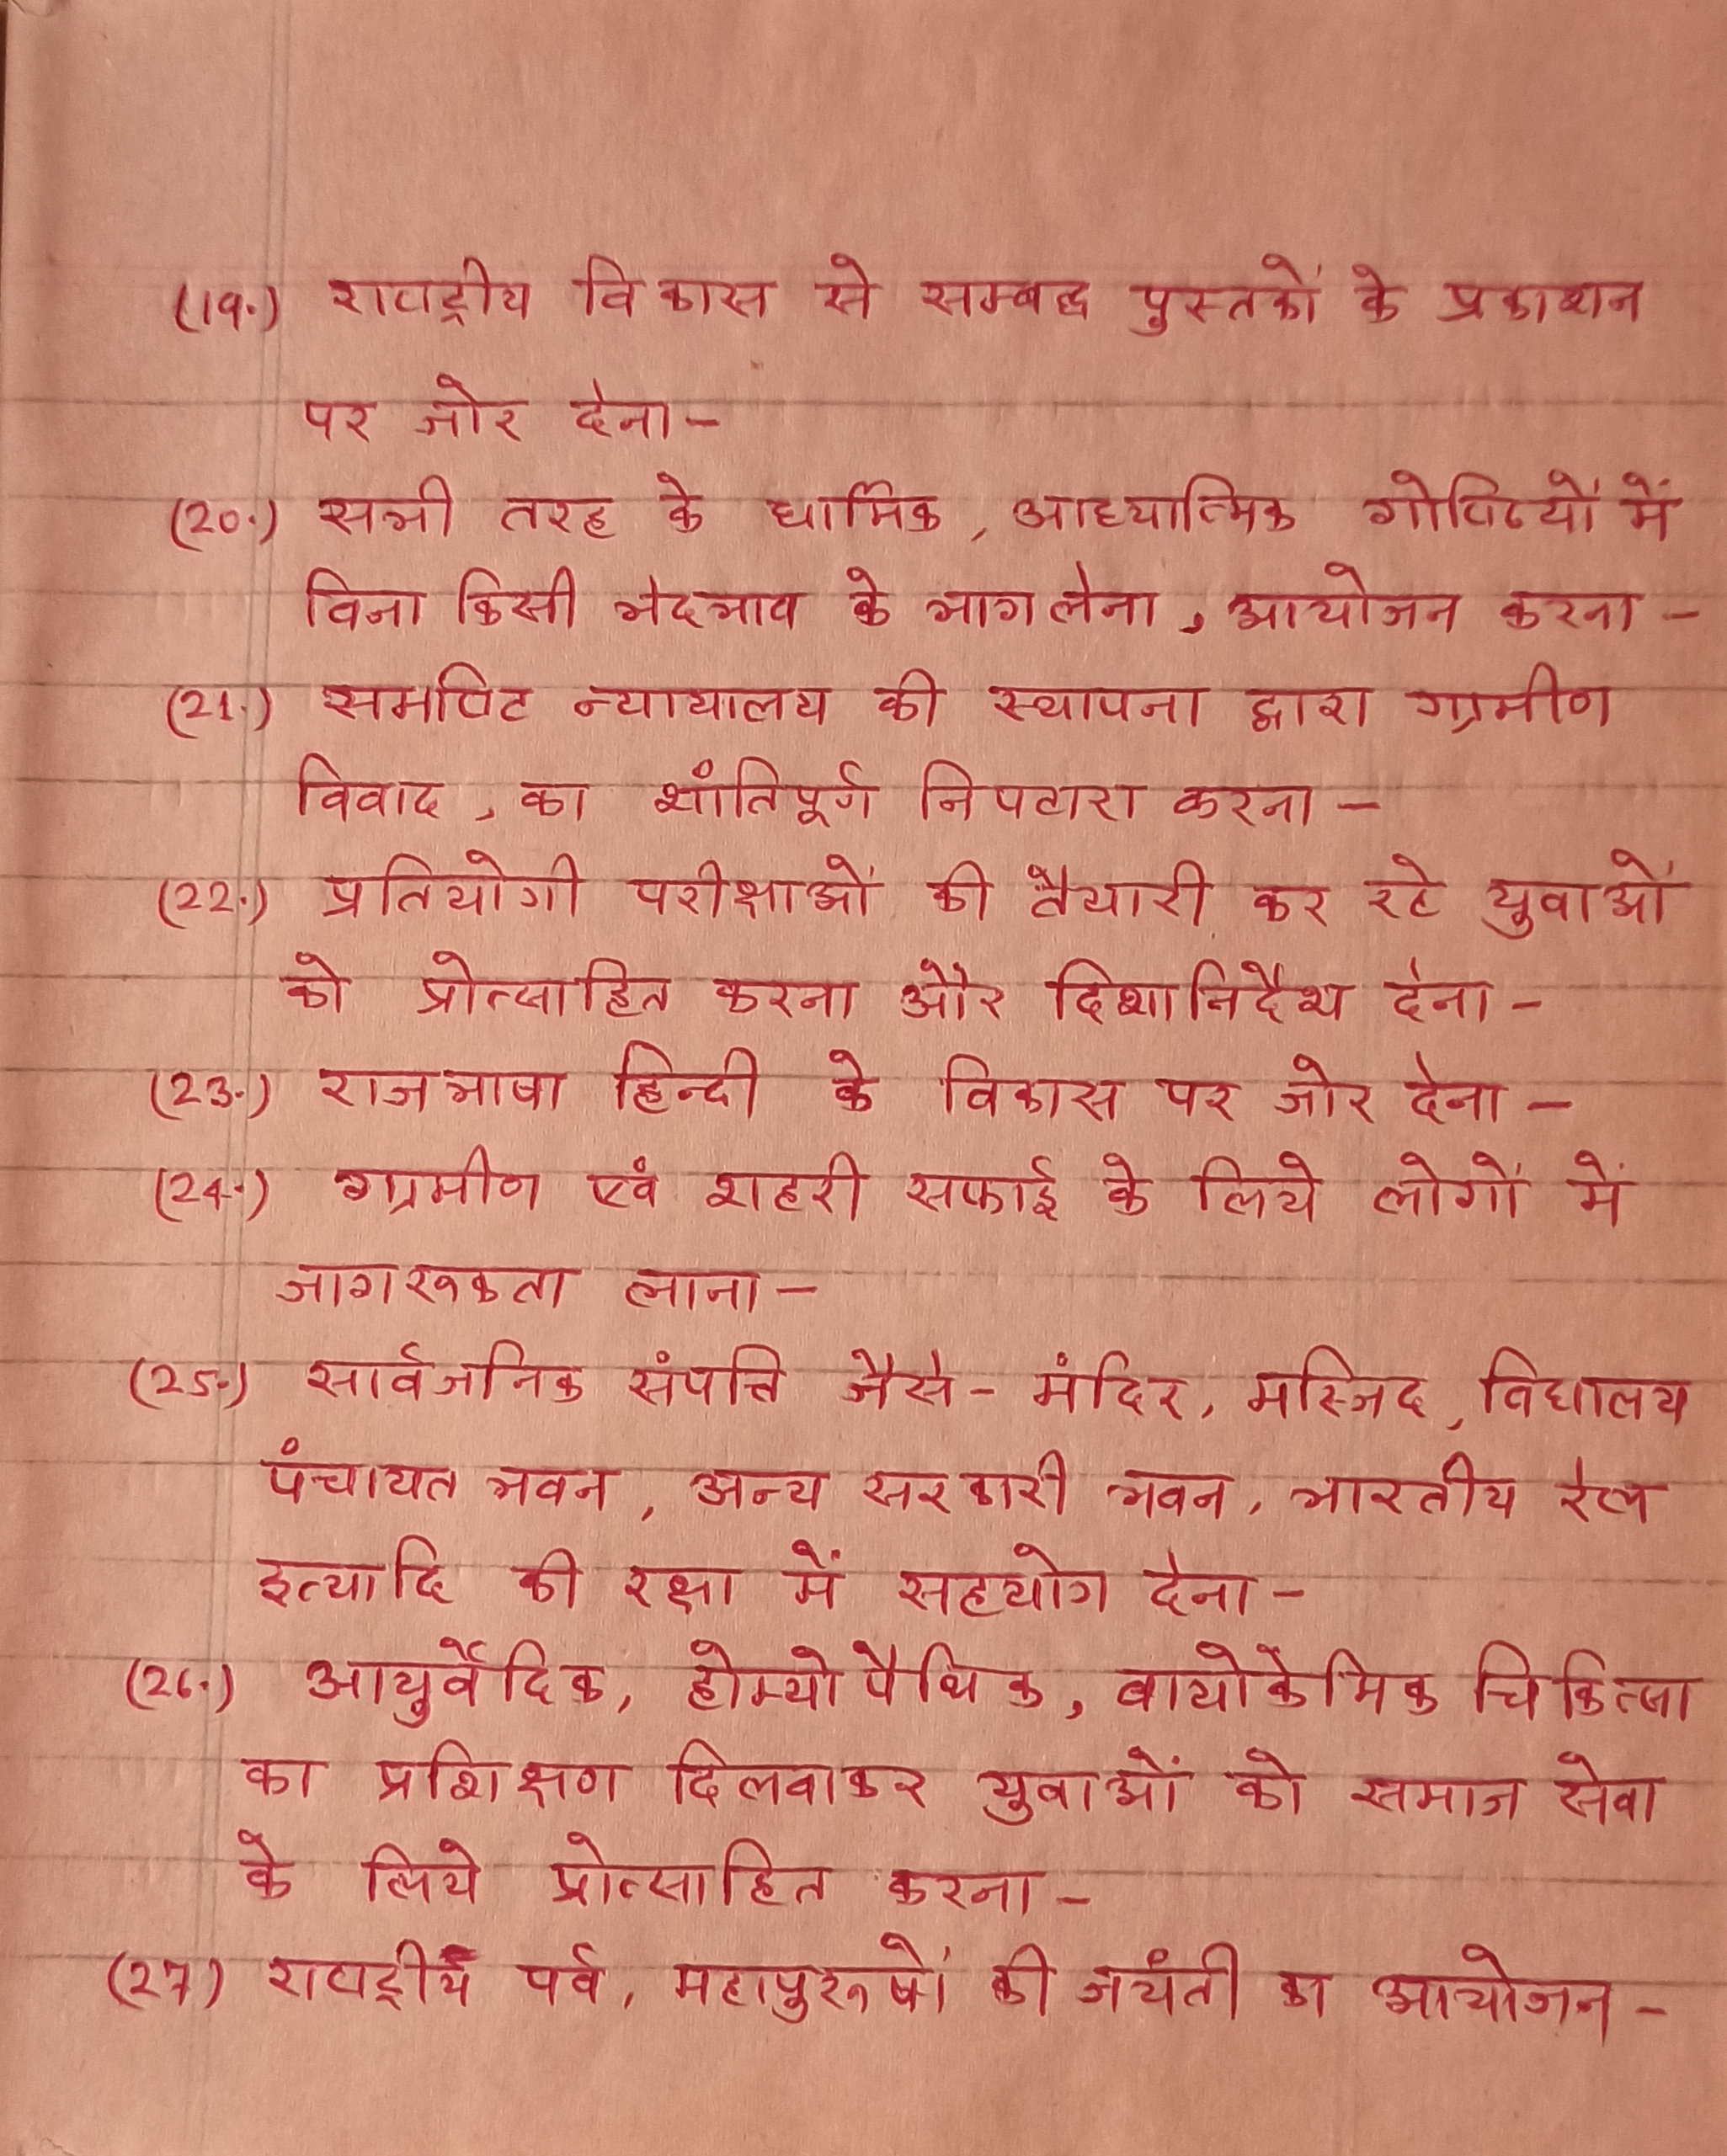 (19.) राष्ट्रीय विकास से सम्बद्ध पुस्तकों के प्रकाशन
पर जोर देना-
(20.) सभी तरह के धार्मिक, आध्यात्मिक गोष्ठियों में
विना किसी भेदभाव के भाग लेना, आयोजन करना -
(21.) समष्टि न्यायालय की स्थापना द्वारा ग्रामीण
विवाद, का शांतिपूर्ण निपटारा करना -
(22.) प्रतियोगी परीक्षाओं की तैयारी कर रहे युवाओं
को प्रोत्साहित करना और दिशानिर्देश देना -
(23.) राजभाषा हिन्दी के विकास पर जोर देना -
(24.) ग्रामीण एवं शहरी सफाई के लिये लोगों में
जागरूकता लाना -
(25.) सार्वजनिक संपत्ति जैसे- मंदिर, मस्जिद, विद्यालय
पंचायत भवन, अन्य सरकारी भवन, भारतीय रेल
इत्यादि की रक्षा में सहयोग देना -
(26.) आयुर्वेदिक, होम्योपैथिक, वायोकेमिक चिकित्सा
का प्रशिक्षण दिलवाकर युवाओं को समाज सेवा
के लिये प्रोत्साहित करना -
(27) राष्ट्रीय पर्व, महापुरूषों की जयंती का आयोजन -